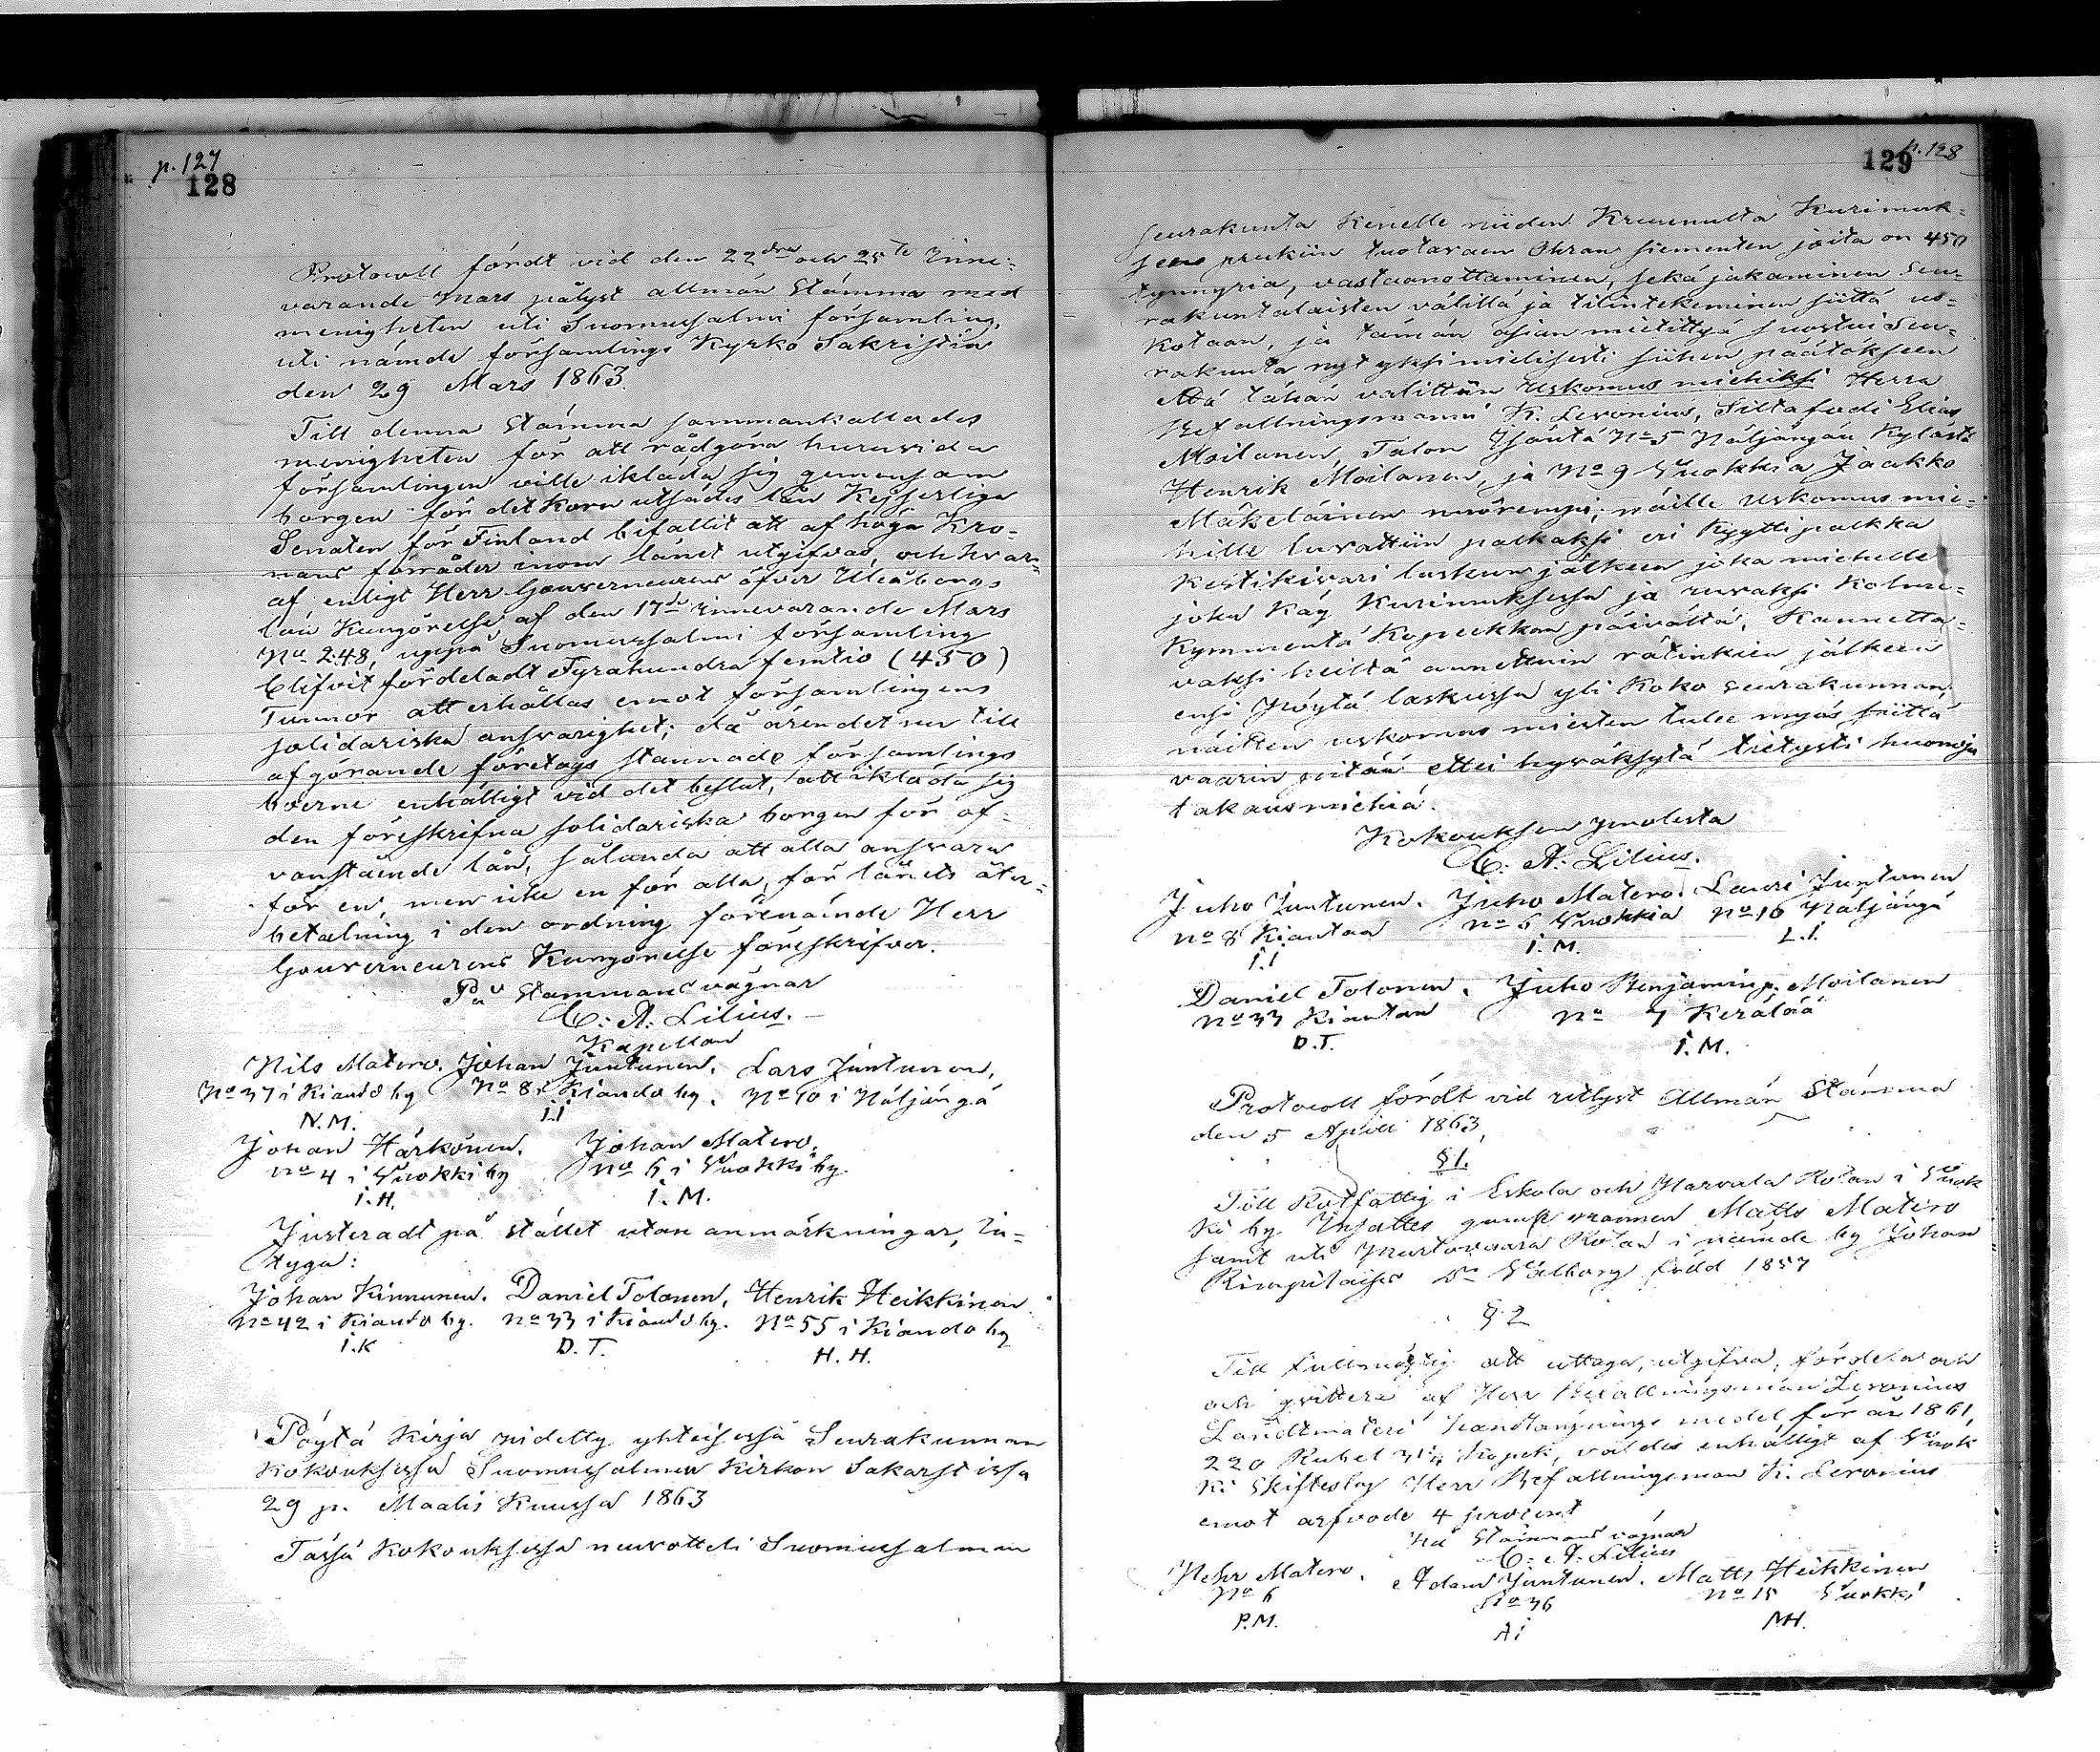 p. 127
128
Protocoll fördt vid den 22dra och 25te Inne-
varande Mars pålyst allmän Stämma med
menigheten uti Suomussalmi församling,
uti nämde församlings Kyrko Sakristia
den 29 Mars 1863.
Till denna Stämma sammankallades
menigheten för att rådgöra huruvida
församlingen ville ikläda sig gemensam
borgen för det Korn utsädes lån Kejserliga
Senaten för Finland befallit att af höga Kro-
nans förråder inom länet utgifvas, och hvar-
af, enligt Herr Gouverneurens öfver Uleåborgs
län Kungörelse af den 17de innevarande Mars
No 248, uppå Suomussalmi församling
blifvit fördeladt Fyrahundrafemtio (450)
Tunnor att erhållas emot församlingens
solidariska ansvarighet; då ärendet nu till
afgörande företogs stannade församlings
boerne enhälligt vid det beslut, att ikläda sig
den föreskrifna solidariska borgen för of-
vanstående lån, sålunda att alla ansvara
för en, men icke en för alla, för lånets åter-
betalning i den ordning förenämde Herr
Gouverneurens Kungörelse föreskrifver.
På Stämmans vägnar
C: A: Lilius.
Kapellan
Nils Matero. Johan Juntunen. Lars Juntunen,
No 37 i Kiando by No 8 i Kiando by. No 10 i Näljängä
N.M. I.I
Johan Härkönen. Johan Matero.
No 4 i Vuokki by No 6 i Vuokki by.
I.H. I.M.
Justeradt på stället utan anmärkningar, in-
tyga:
Johan Kinnunen. Daniel Tolonen, Henrik Heikkinen
No 42 i Kiando by. No 33 i Kiando by. No 55 i Kiando by
I.K D.T. H.H.
Pöytä Kirja pidetty yhteisessä Seurakunnan
Kokouksessa Suomussalmen Kirkon Sakarstissa
29 p. Maalis Kuussa 1863
Tässä Kokouksessa neuvotteli Suomussalmen
129 p. 128
seurakunta Kenelle niiden Kruunulta Kurimuk-
sen prukiin tuotavaen Ohran siementen joita on 450
tynnyriä, vastaanottaminen, sekä jakaminen seu-
rakuntalaisten välillä ja tilintekeminen siittä us-
kotaan, ja tämän asian mietittyä suostui Seu-
rakunta nyt yksimielisesti siihen päätökseen
että tähän valittiin Uskomus miehiksi Herra
Befallningsmanni K. Levonius, Siltafodi Elias
Moilanen Talon Isäntä No 5 Näljängän Kylästä
Henrik Moilanen, ja No 9 Vuokkia Jaakko
Mäkeläinen nuorempi; näille Uskomus mie-
hille luvattiin palkaksi eri Kyytti palkka
Kestikivari laskun jälkeen joka miehelle
joka Käy Kurimuksessa ja ruvaksi Kolme-
Kymmentä Kopeekkaa päivältä, Kannetta-
vaksi heiltä annettuin rätinkien jälkeen
ensi Pöytä laskussa yli Koko Seurakunnan.
näitten uskomus miesten tulee myös siittä
vaarin pitää ettei hyväksytä tietysti huonoja
takausmiehiä.
Kokouksen puolesta
C: A: Lilius.
Juho Juntunen. Juho Matero. Lauri Juntunen
No 8 Kiantaa No 6 Vuokkia No 10 Näljängä
I.I I.M. L.I.
Daniel Tolonen. Juho Benjaminp. Moilanen
No 33 Kiantaa No 7 Kerälää
D.T. I.M.
Protocoll fördt vid utlyst Allmän Stämma
den 5 April 1863,
§1.
Till Rotfattig i Eskola och Rotan i Vuok
ki by Insattes gamle mannen Matts Matero
samt uti Mustavaara Rotan i nämde by Johan
Valborg född 1857
§ 2
Till fullmägtig att uttaga, utgifva, fördela och
och qvittera af Herr Befallningsman Levonius
Landtmäteri handtangnings medel för år 1861,
220 Rubel 31¼ Kopek, valdes enhälligt af Vuok
ki Skifteslag Herr Befallningsman K. Levonius
emot arfvode 4 procent
På Stämmans vägnar
C: A: Lilius
Pehr Matero. Adam Juntunen. Matts Heikkinen
No 6 No 36 No 15 Vuokki
P.M. AI MH.